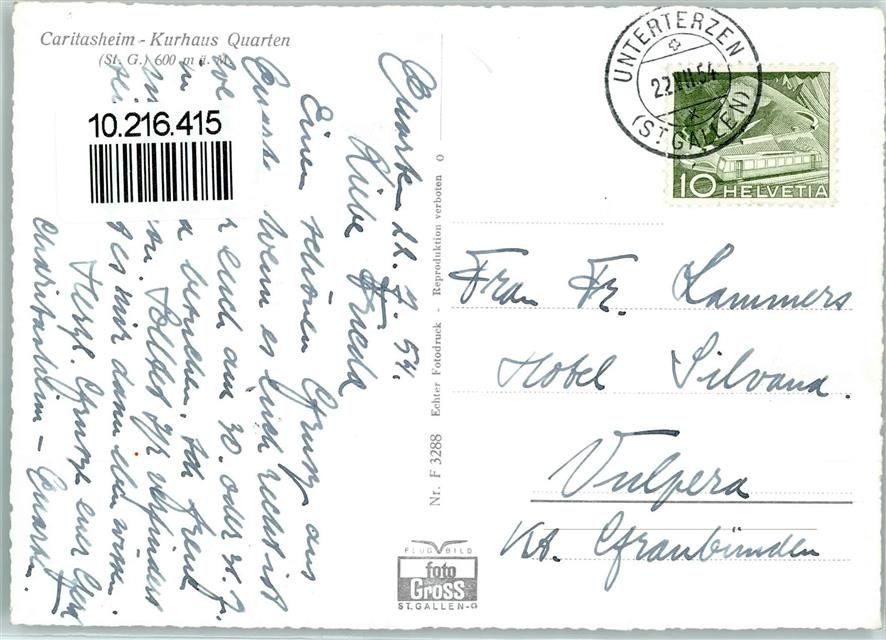 Caritasheim - Kurhaus Quarten
(St. G.) 600 m ü. M.
10.216.415
Quarten 22. 7. 54.
Liebe Friede
Einen schönen Gruss aus
Quarten Wenn es Euch recht ist
Euch am 30. oder 31. 7.
besuchen. Ich freue
Solltet Ihr verhindert
es mir dann
Herzl. Grüsse euer
Charitasheim - Quarten.
Nr. F 3288 Echter Fotodruck - Reproduktion verboten O
FLUG BILD
foto
Gross
ST. GALLEN-O
UNTERTERZEN
22.VII.54
(ST. GALLEN)
10 HELVETIA
Frau Fr. Lammers
Hotel Silvana.
Vulpera
Kt. Graubünden